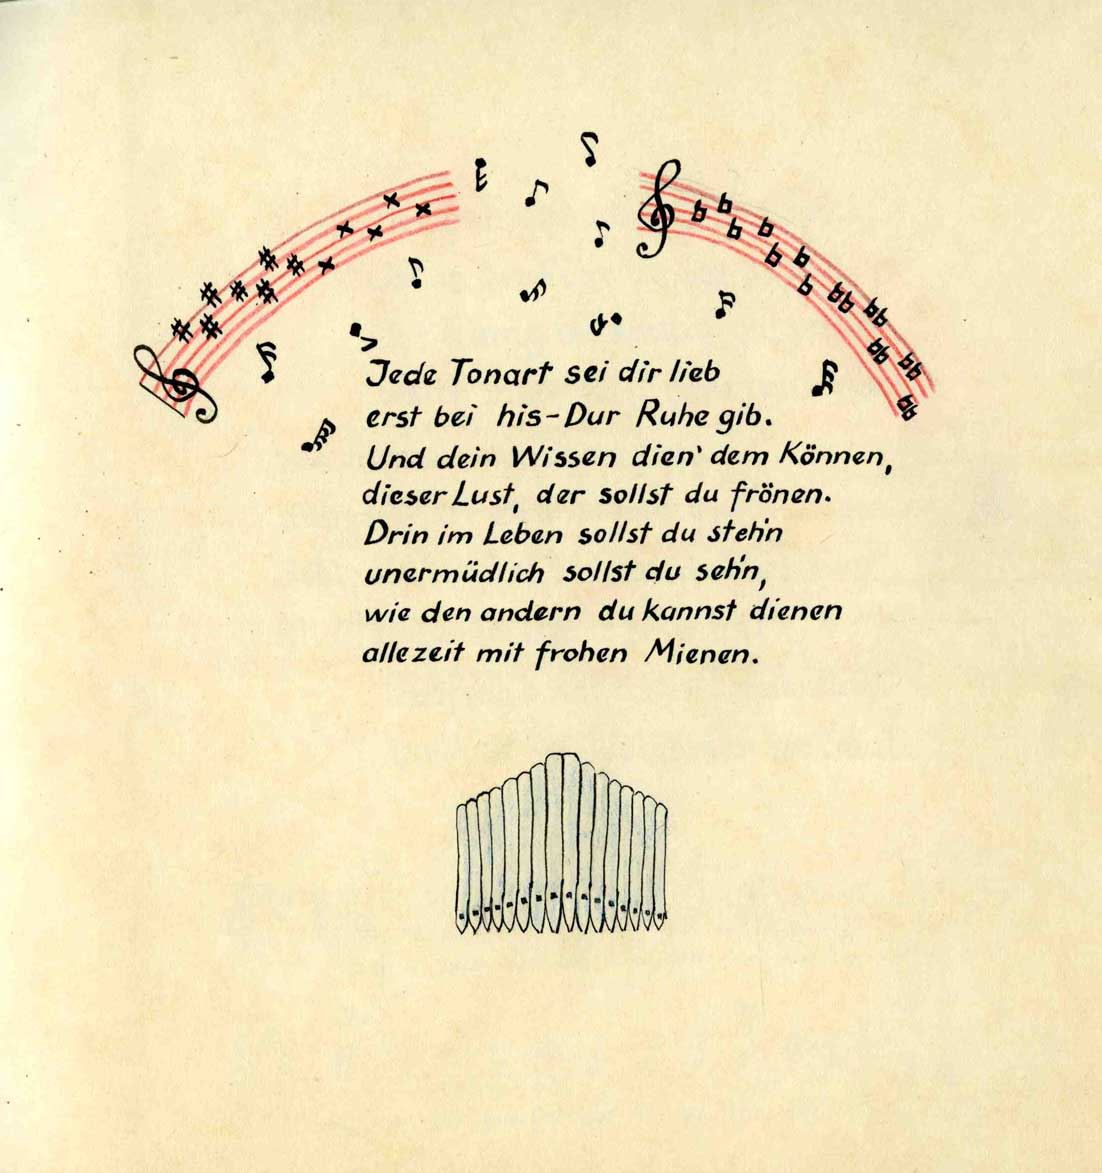 Jede Tonart sei dir lieb
erst bei his-Dur Ruhe gib.
Und dein Wissen dien' dem Können,
dieser Lust, der sollst du frönen.
Drin im Leben sollst du steh'n
unermüdlich sollst du seh'n,
wie den andern du kannst dienen
allezeit mit frohen Mienen.